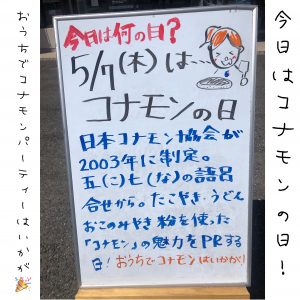 今日はコナモンの日!
今日は何の日?
5/7(木)は…
コナモンの日
日本コナモン協会が
2003年に制定。
五(こ)七(な)の語呂
合せから。たこやき・うどん
おこのみやき粉を使った
「コナモン」の魅力をPRする
日!おうちでコナモンはいかが!
おうちでコナモンパーティーはいかが🎉